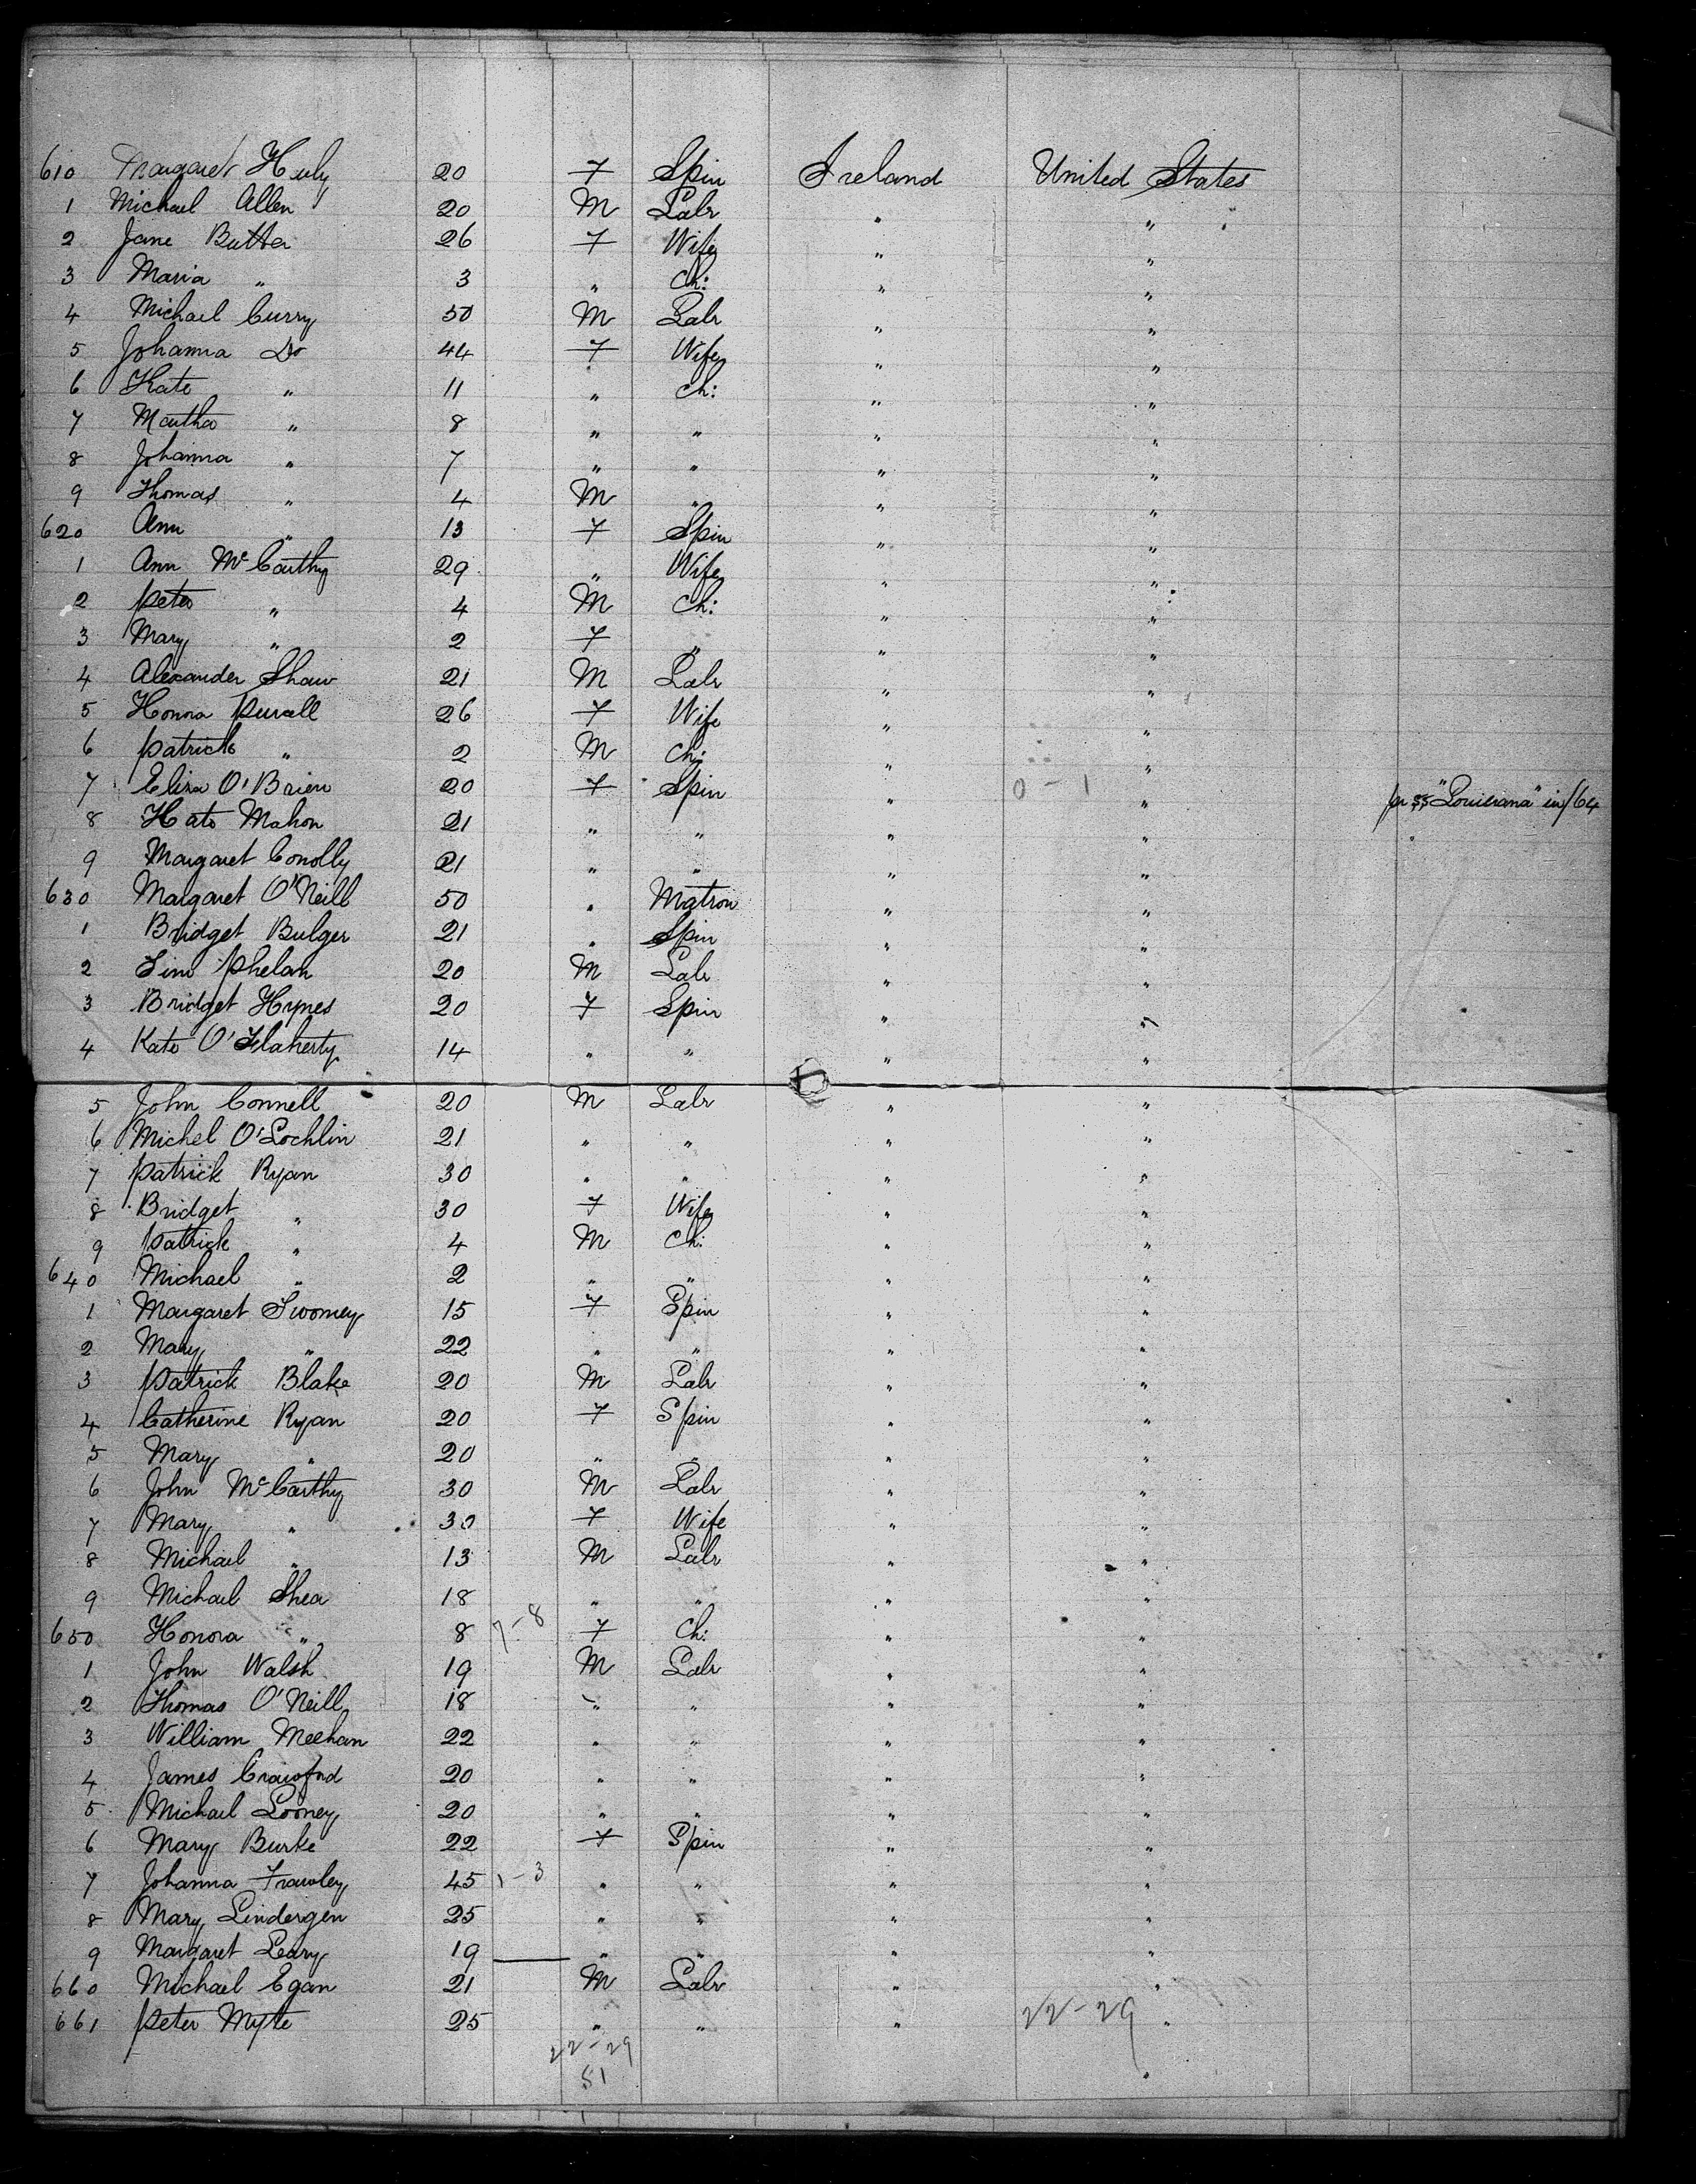 610 Margaret Huly 20 F Spin Ireland United States
1 Michael Allen 20 M Labr " "
2 Jane Butter 26 F Wife " "
3 Maria " 3 " Ch: " "
4 Michael Curry 50 M Labr " "
5 Johanna Do 44 F Wife " "
6 Kate " 11 " Ch: " "
7 Martha " 8 " " " "
8 Johanna " 7 " " " "
9 Thomas " 4 M " " "
620 Ann " 13 F Spin " "
1 Ann McCarthy 29 " Wife " "
2 Peter " 4 M Ch: " "
3 Mary " 2 F " " "
4 Alexander Shaw 21 M Labr " "
5 Honora Purcell 26 F Wife " "
6 Patrick " 2 M Ch: " "
7 Eliza O'Brien 20 F Spin " 0 - 1 " pr SS "Louisiana" in /64
8 Kate Mahon 21 " " " "
9 Margaret Conolly 21 " " " "
630 Margaret O'Neill 50 " Matron " "
1 Bridget Bulger 21 " Spin " "
2 Tim Phelan 20 M Labr " "
3 Bridget Hynes 20 F Spin " "
4 Kate O'Flaherty 14 " " " "
5 John Connell 20 M Labr " "
6 Michel O'Lochlin 21 " " " "
7 Patrick Ryan 30 " " " "
8 Bridget " 30 F Wife " "
9 Patrick " 4 M Ch: " "
640 Michael " 2 " " " "
1 Margaret Twomey 15 F Spin " "
2 Mary " 22 " " " "
3 Patrick Blake 20 M Labr " "
4 Catherine Ryan 20 F Spin " "
5 Mary " 20 " " " "
6 John McCarthy 30 M Labr " "
7 Mary " 30 F Wife " "
8 Michael " 13 M Labr " "
9 Michael Shea 18 " " " "
650 Honora " 8 7-8 F Ch: " "
1 John Walsh 19 M Labr " "
2 Thomas O'Neill 18 " " " "
3 William Meehan 22 " " " "
4 James Crawford 20 " " " "
5 Michael Looney 20 " " " "
6 Mary Burke 22 F Spin " "
7 Johanna Frawley 45 1-3 " " " "
8 Mary Lindergen 25 " " " "
9 Margaret Leary 19 " " " "
660 Michael Egan 21 M Labr " "
661 Peter 25 " " " 22-29 "
22-29 "
51